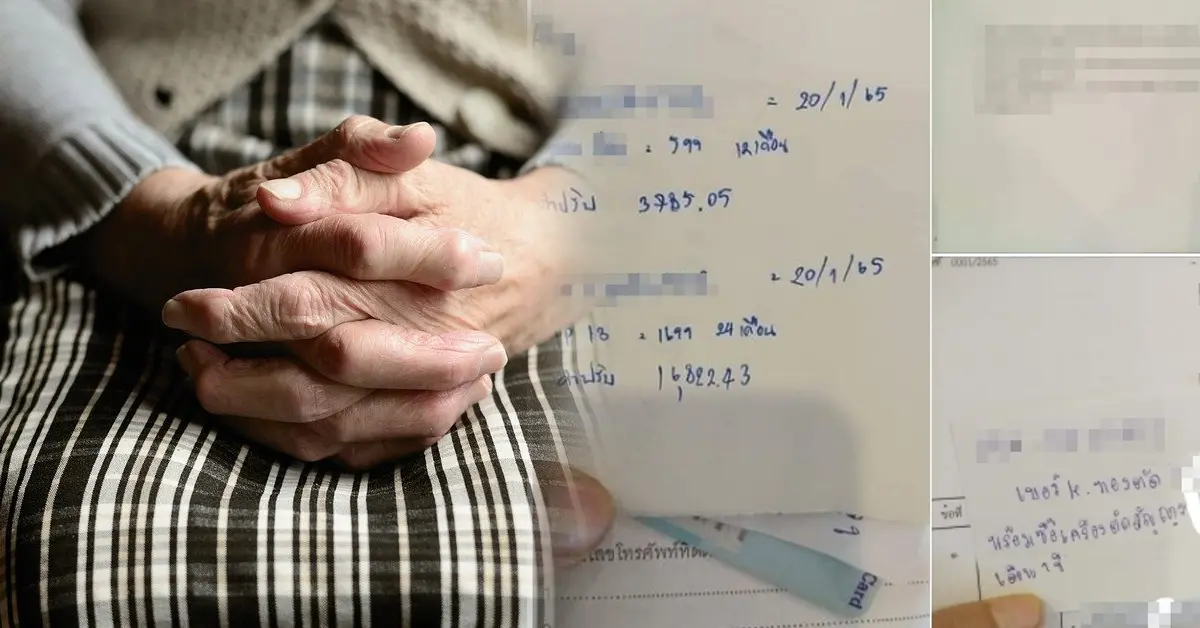 = 20/1/65
= 599 12 เดือน
ค่าปรับ 3785.05
= 20/1/65
= 1699 24 เดือน
ค่าปรับ 16,822.43
เลขโทรศัพท์ที่
Card
0001/2565
เบอร์ K. ทองตัด
พร้อมซื้อเครื่องตัดสัญญา
ข้อที่